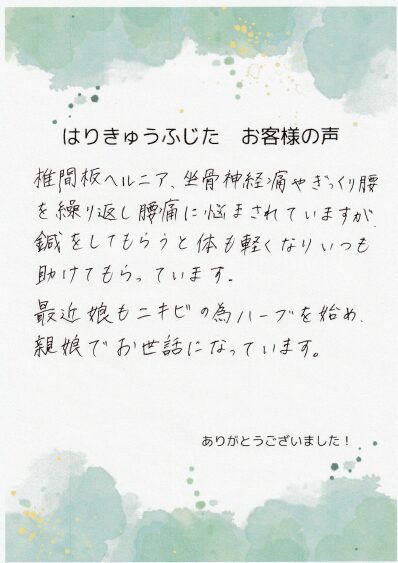 はりきゅうふじた　お客様の声
椎間板ヘルニア、坐骨神経痛やぎっくり腰
を繰り返し腰痛に悩まされていますが、
鍼をしてもらうと体も軽くなりいつも
助けてもらっています。
最近娘もニキビの為ハーブを始め、
親娘でお世話になっています。
ありがとうございました！